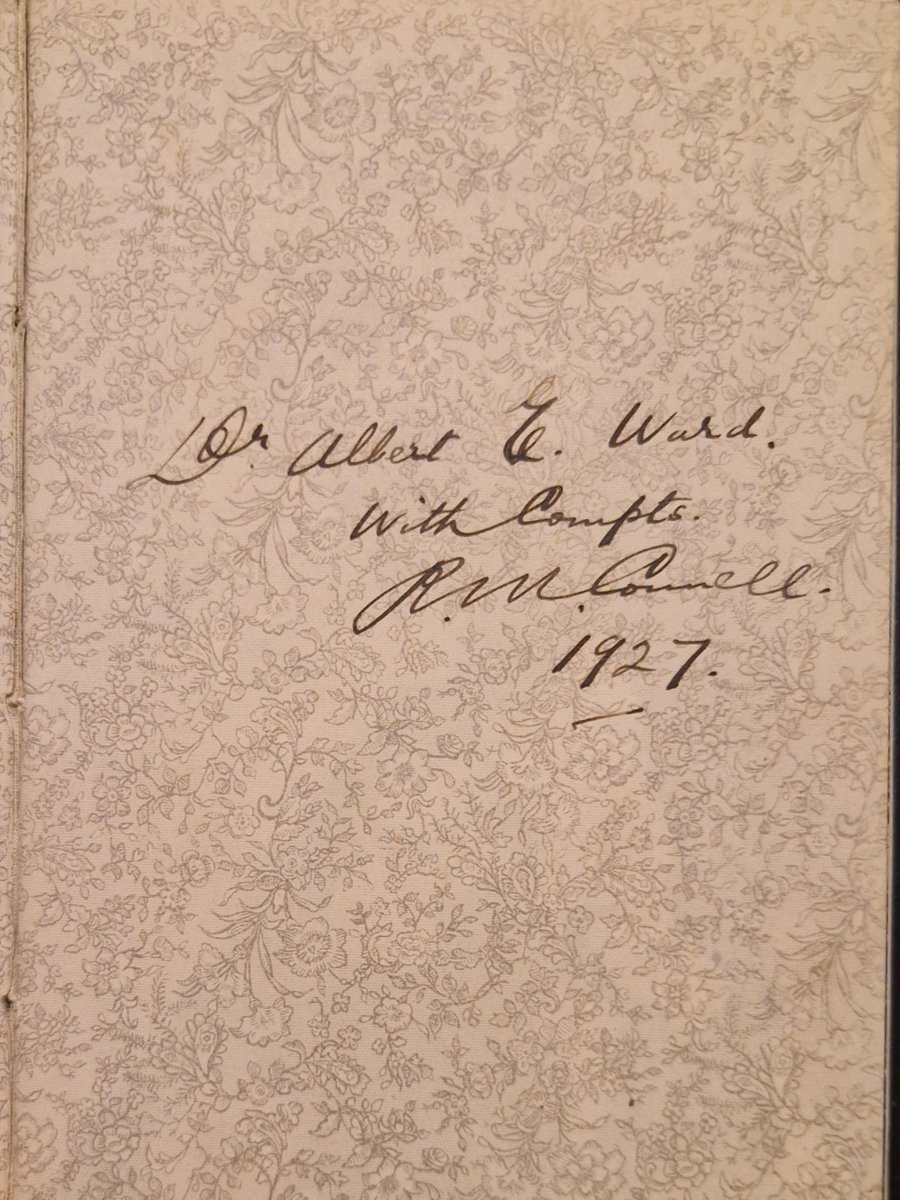 Dr Albert E. Ward.
With Compts.
R. M. Connell.
1927.